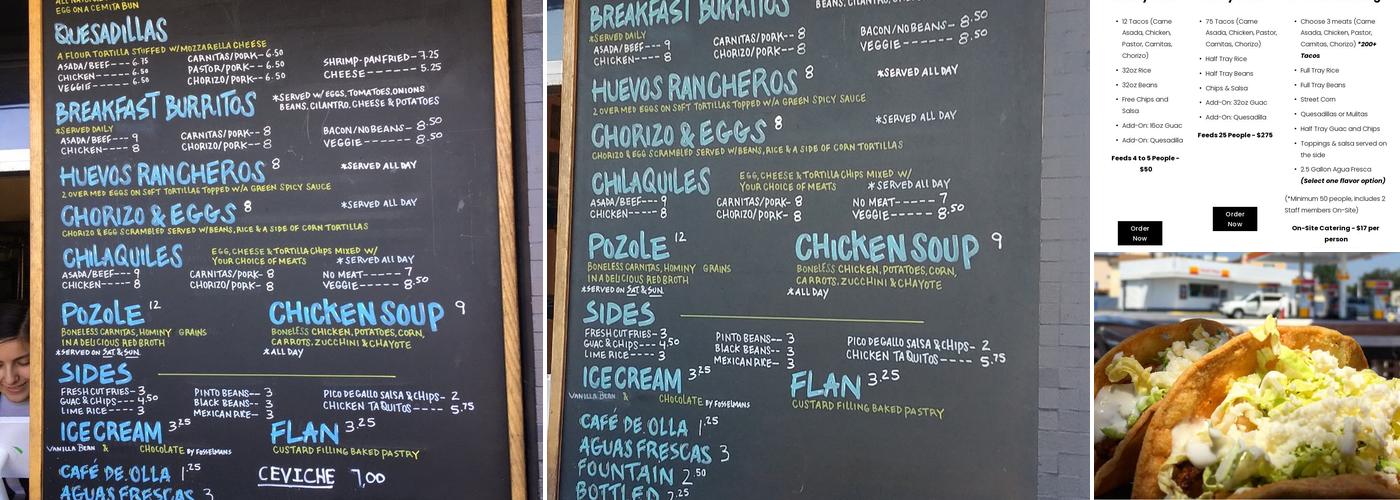 EGG ON A CEMITA BUN
QUESADILLAS
A FLOUR TORTILLA STUFFED W/MOZZARELLA CHEESE
ASADA/BEEF--- 6.75
CHICKEN------ 6.50
VEGGIE------- 6.50
CARNITAS/PORK- 6.50
PASTOR/PORK-- 6.50
CHORIZO/PORK- 6.50
SHRIMP-PAN FRIED- 7.25
CHEESE------- 5.25
BREAKFAST BURRITOS
*SERVED W/ EGGS, TOMATOES, ONIONS
BEANS, CILANTRO, CHEESE & POTATOES
*SERVED DAILY
ASADA/BEEF--- 9
CHICKEN---- 8
CARNITAS/PORK-- 8
CHORIZO/PORK-- 8
BACON/NO BEANS- 8.50
VEGGIE------ 8.50
HUEVOS RANCHEROS 8
*SERVED ALL DAY
2 OVER MED EGGS ON SOFT TORTILLAS TOPPED W/A GREEN SPICY SAUCE
CHORIZO & EGGS 8
*SERVED ALL DAY
CHORIZO & EGG SCRAMBLED SERVED W/BEANS, RICE & A SIDE OF CORN TORTILLAS
CHILAQUILES
EGG, CHEESE & TORTILLA CHIPS MIXED W/
YOUR CHOICE OF MEATS *SERVED ALL DAY
ASADA/BEEF--- 9
CHICKEN----- 8
CARNITAS/PORK- 8
CHORIZO/PORK-- 8
NO MEAT----- 7
VEGGIE------ 8.50
POZOLE 12
BONELESS CARNITAS, HOMINY GRAINS
IN A DELICIOUS RED BROTH
*SERVED ON SAT & SUN.
CHICKEN SOUP 9
BONELESS CHICKEN, POTATOES, CORN,
CARROTS, ZUCCHINI & CHAYOTE
*ALL DAY
SIDES
FRESH CUT FRIES- 3
GUAC & CHIPS--- 4.50
LIME RICE---- 3
PINTO BEANS-- 3
BLACK BEANS-- 3
MEXICAN RICE-- 3
PICO DE GALLO SALSA & CHIPS- 2
CHICKEN TAQUITOS---- 5.75
ICE CREAM 3.25
VANILLA BEAN & CHOCOLATE BY FOSSELMANS
FLAN 3.25
CUSTARD FILLING BAKED PASTRY
CAFÉ DE OLLA 1.25
CEVICHE 7.00
AGUAS FRESCAS 3
BREAKFAST BURRITOS
BEANS, CILANTRO, CHEESE & POTATOES
*SERVED DAILY
ASADA/BEEF--- 9
CHICKEN---- 8
CARNITAS/PORK-- 8
CHORIZO/PORK-- 8
BACON/NO BEANS- 8.50
VEGGIE------ 8.50
HUEVOS RANCHEROS 8
*SERVED ALL DAY
2 OVER MED EGGS ON SOFT TORTILLAS TOPPED W/A GREEN SPICY SAUCE
CHORIZO & EGGS 8
*SERVED ALL DAY
CHORIZO & EGG SCRAMBLED SERVED W/BEANS, RICE & A SIDE OF CORN TORTILLAS
CHILAQUILES
EGG, CHEESE & TORTILLA CHIPS MIXED W/
YOUR CHOICE OF MEATS *SERVED ALL DAY
ASADA/BEEF--- 9
CHICKEN----- 8
CARNITAS/PORK- 8
CHORIZO/PORK-- 8
NO MEAT----- 7
VEGGIE------ 8.50
POZOLE 12
BONELESS CARNITAS, HOMINY GRAINS
IN A DELICIOUS RED BROTH
*SERVED ON SAT & SUN.
CHICKEN SOUP 9
BONELESS CHICKEN, POTATOES, CORN,
CARROTS, ZUCCHINI & CHAYOTE
*ALL DAY
SIDES
FRESH CUT FRIES- 3
GUAC & CHIPS--- 4.50
LIME RICE---- 3
PINTO BEANS-- 3
BLACK BEANS-- 3
MEXICAN RICE-- 3
PICO DE GALLO SALSA & CHIPS- 2
CHICKEN TAQUITOS---- 5.75
ICE CREAM 3.25
VANILLA BEAN & CHOCOLATE BY FOSSELMANS
FLAN 3.25
CUSTARD FILLING BAKED PASTRY
CAFÉ DE OLLA 1.25
AGUAS FRESCAS 3
FOUNTAIN 2.50
BOTTLED 2.25
• 12 Tacos (Carne
Asada, Chicken,
Pastor, Carnitas,
Chorizo)
• 32oz Rice
• 32oz Beans
• Free Chips and
Salsa
• Add-On: 16oz Guac
• Add-On: Quesadilla
Feeds 4 to 5 People -
$50
Order
Now
• 75 Tacos (Carne
Asada, Chicken, Pastor,
Carnitas, Chorizo)
• Half Tray Rice
• Half Tray Beans
• Chips & Salsa
• Add-On: 32oz Guac
• Add-On: Quesadilla
Feeds 25 People - $275
Order
Now
• Choose 3 meats (Carne
Asada, Chicken, Pastor,
Carnitas, Chorizo) *200+
Tacos
• Full Tray Rice
• Full Tray Beans
• Street Corn
• Quesadillas or Mulitas
• Half Tray Guac and Chips
• Toppings & salsa served on
the side
• 2.5 Gallon Agua Fresca
(Select one flavor option)
(*Minimum 50 people, Includes 2
Staff members On-Site)
On-Site Catering - $17 per
person